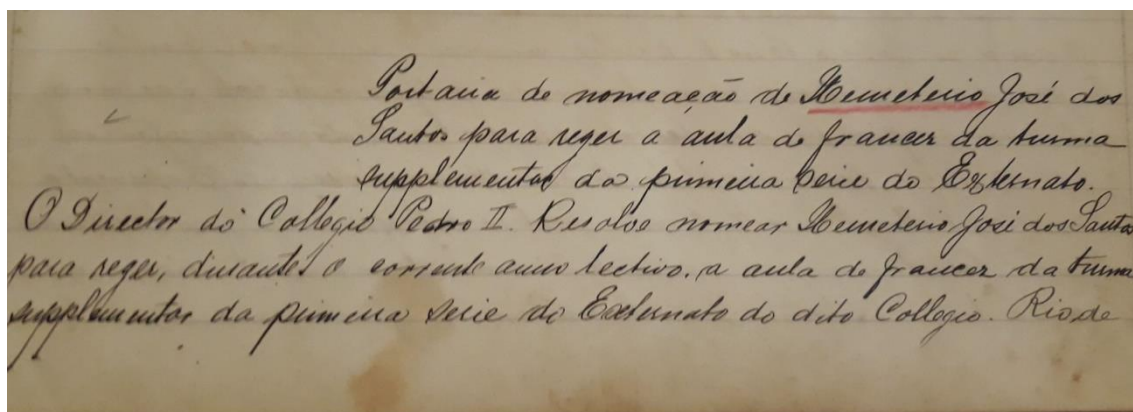 Portaria de nomeação de Hemeterio José dos
Santos para reger a aula de francez da turma
supplementar da primeira serie do Externato.
O Director do Collegio Pedro II. Resolve nomear Hemeterio José dos Santos
para reger, durante o corrente anno lectivo, a aula de francez da turma
supplementar da primeira serie do Externato do dito Collegio. Rio de